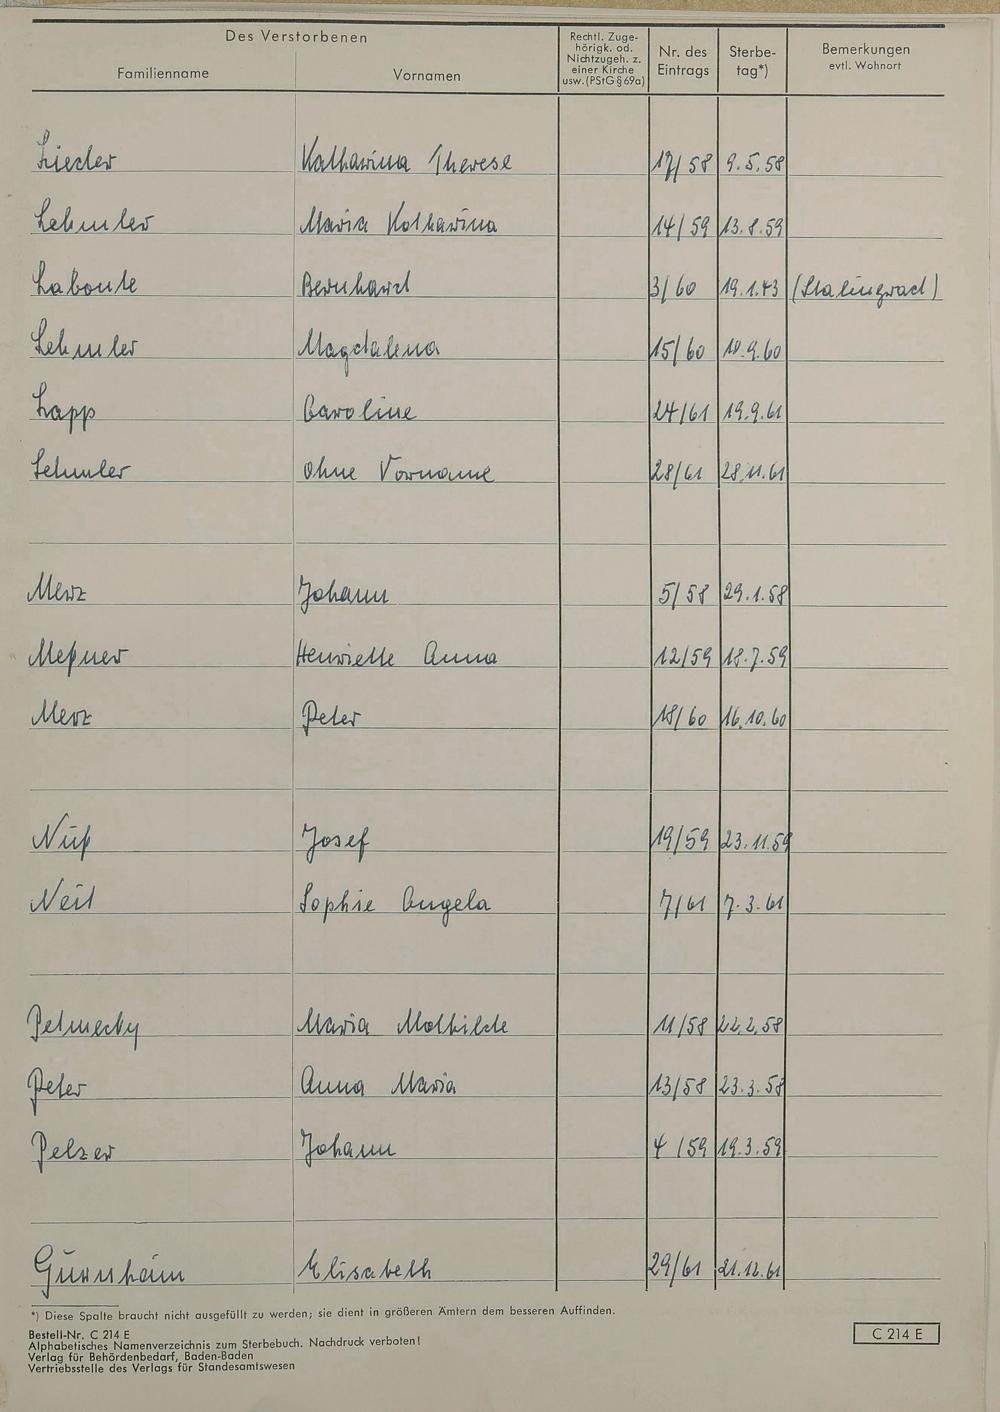 Des Verstorbenen
Familienname
Vornamen
Rechtl. Zuge-
hörigk. od.
Nichtzugeh. z.
einer Kirche
usw. (PStG § 69a)
Nr. des
Eintrags
Sterbe-
tag*)
Bemerkungen
evtl. Wohnort
Lieder Katharina Therese 17/58 9.5.58
Lehmler Maria Katharina 14/59 13.8.59
Labonte Bernhard 3/60 19.1.43 (Stalingrad)
Lehmler Magdalena 15/60 10.9.60
Lapp Caroline 24/61 19.9.61
Lehmler Ohne Vorname 28/61 28.11.61
Merz Johann 5/58 29.1.58
Meßner Henriette Anna 12/59 18.7.59
Merz Peter 18/60 16.10.60
Nüß Josef 19/59 23.11.59
Neil Sophie Angela 7/61 7.3.61
Petmecky Maria Mathilde 11/58 22.2.58
Peter Anna Maria 13/58 23.3.58
Pelzer Johann 4/59 19.3.59
Elisabeth 29/61 21.12.61
*) Diese Spalte braucht nicht ausgefüllt zu werden; sie dient in größeren Ämtern dem besseren Auffinden.
Bestell-Nr. C 214 E
Alphabetisches Namenverzeichnis zum Sterbebuch. Nachdruck verboten!
Verlag für Behördenbedarf, Baden-Baden
Vertriebsstelle des Verlags für Standesamtswesen
C 214 E